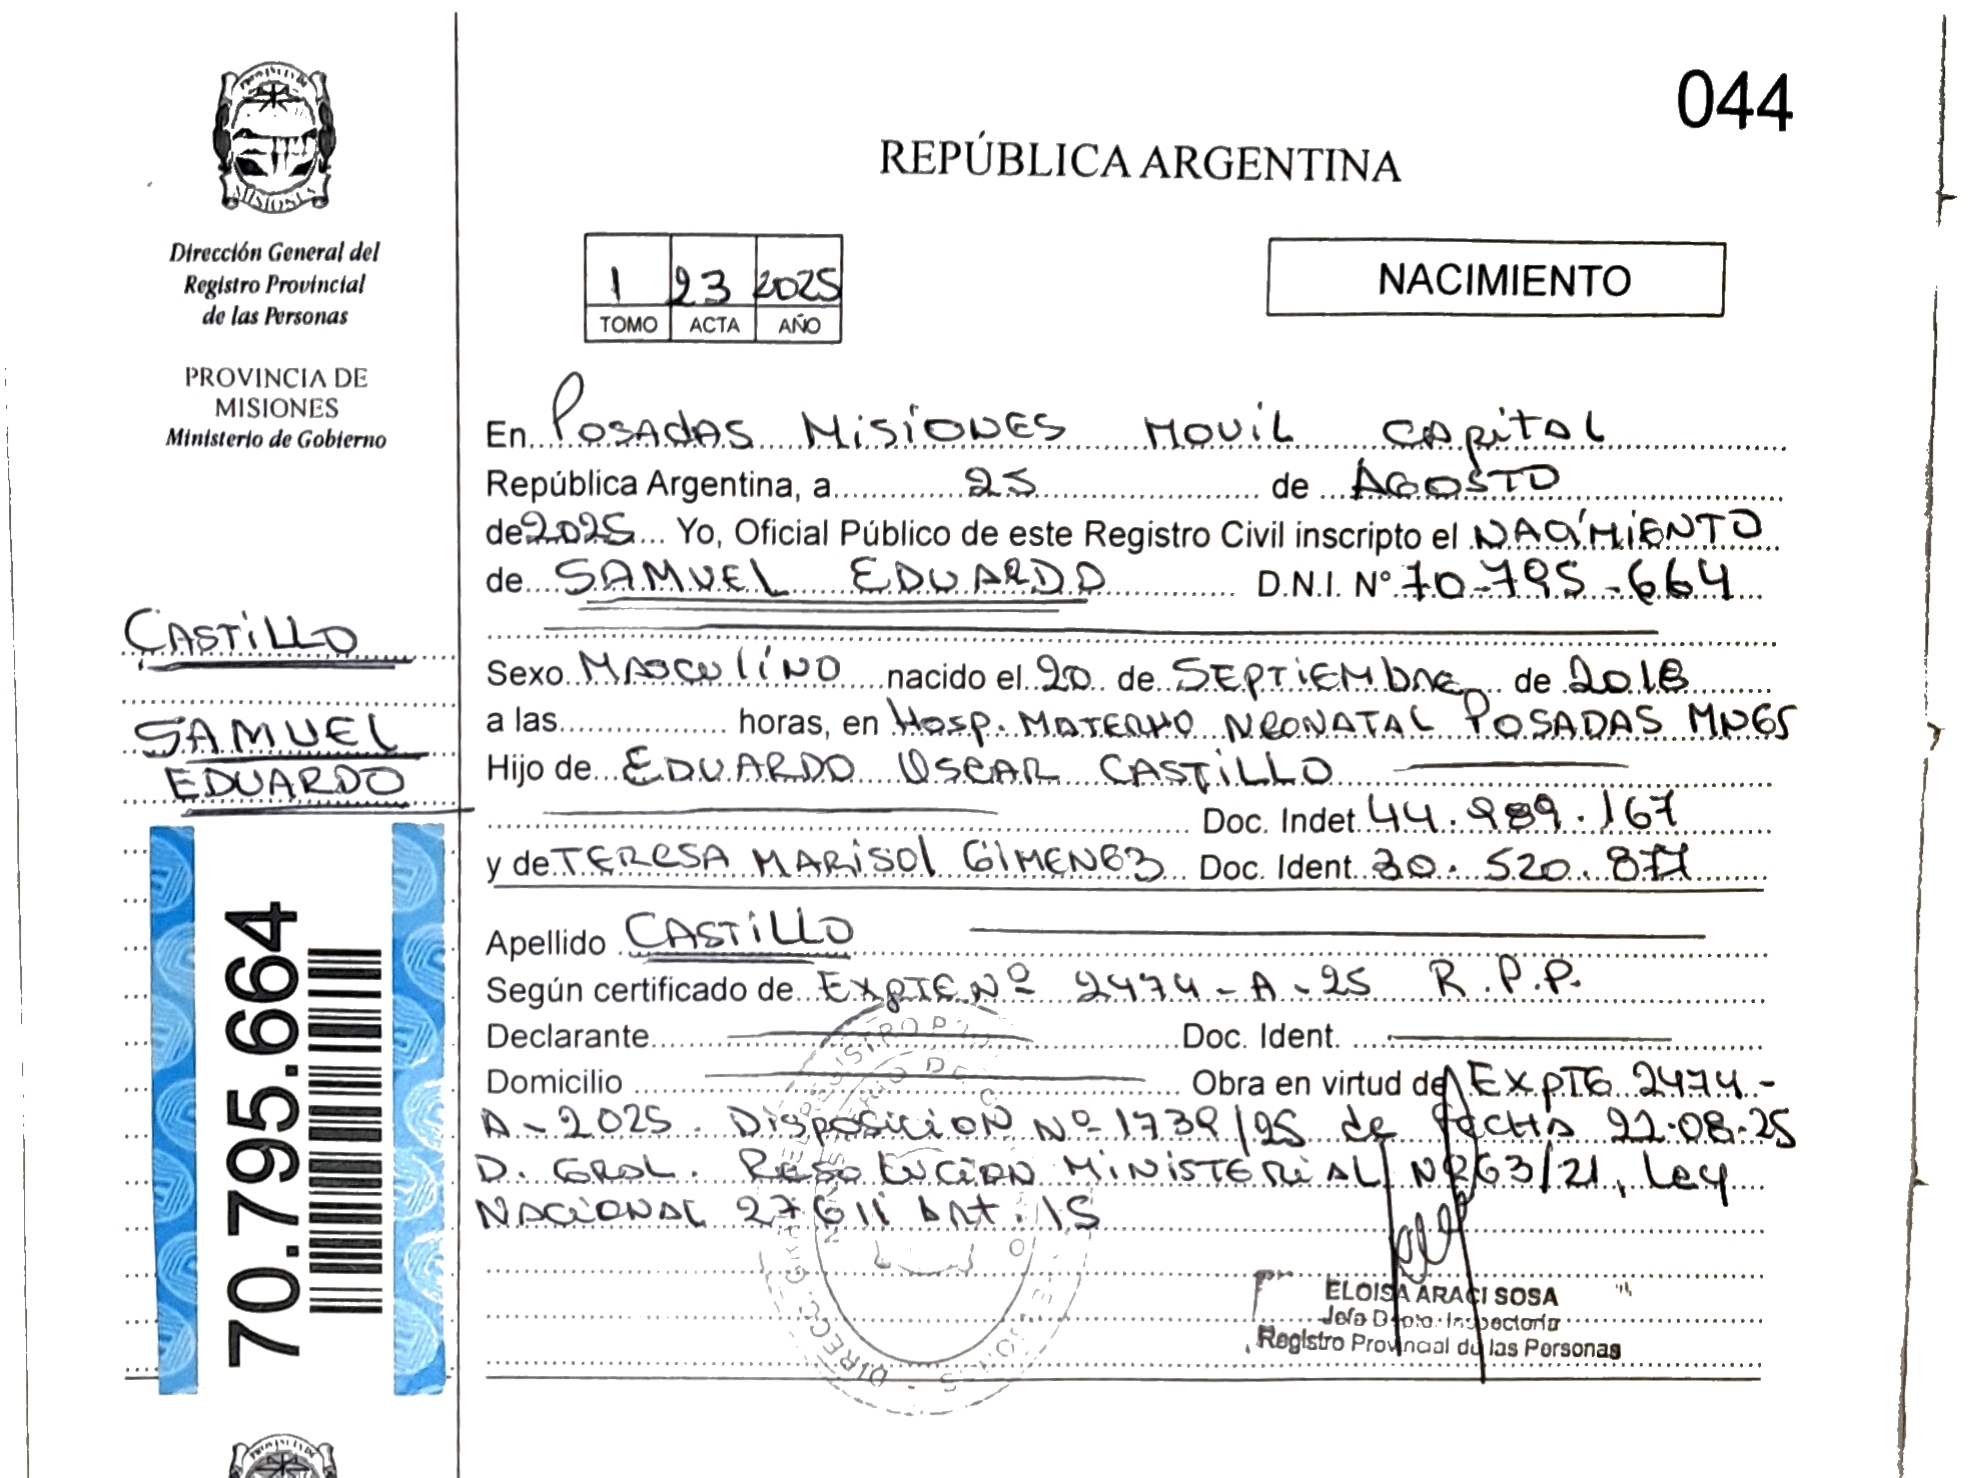 044
REPÚBLICA ARGENTINA
MISIONES
Dirección General del
Registro Provincial
de las Personas
PROVINCIA DE
MISIONES
Ministerio de Gobierno
1 23 2025
TOMO ACTA AÑO
NACIMIENTO
En Posadas Misiones Movil Capital
República Argentina, a 25 de Agosto
de 2025 Yo, Oficial Público de este Registro Civil inscripto el NACIMIENTO
de SAMUEL EDUARDO D.N.I. Nº 70.795.664
CASTILLO
SAMUEL
EDUARDO
70.795.664
Sexo Masculino nacido el 20 de Septiembre de 2018
a las horas, en Hosp. Materno Neonatal Posadas Mnes
Hijo de EDUARDO OSCAR CASTILLO
Doc. Indet 44.989.167
y de TERESA MARISOL GIMENEZ Doc. Ident. 30.520.877
Apellido CASTILLO
Según certificado de Expte Nº 2474-A-25 R.P.P.
Declarante Doc. Ident.
Domicilio Obra en virtud de Expte 2474-
A-2025. Disposicion Nº 1739/25 de fecha 22-08-25
D. Gral. Resolucion Ministerial Nº 263/21, Ley
Nacional 27611 Art. 15
ELOISA ARACI SOSA
Jefa Dpto. Inspectoría
Registro Provincial de las Personas